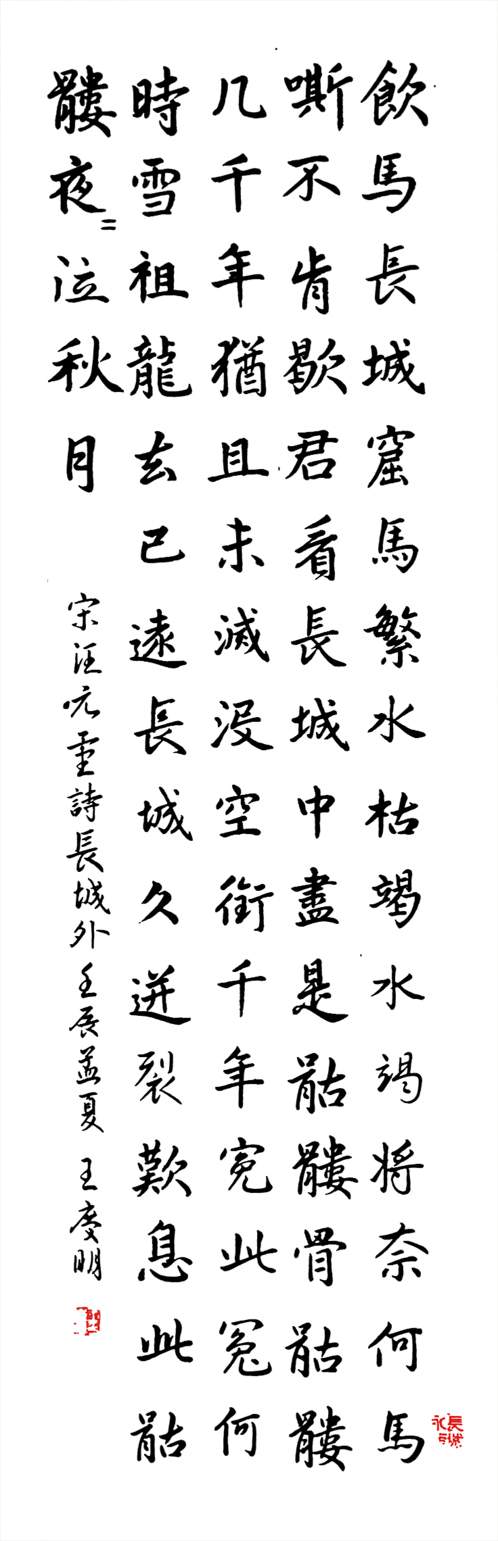 飲馬長城窟馬繁水枯竭水竭将奈何馬
嘶不肯歇君看長城中盡是骷髏骨骷髏
几千年猶且未滅没空銜千年冤此冤何
時雪祖龍去已遠長城久迸裂歎息此骷
髏夜=泣秋月
宋汪元量詩長城外壬辰孟夏王慶明